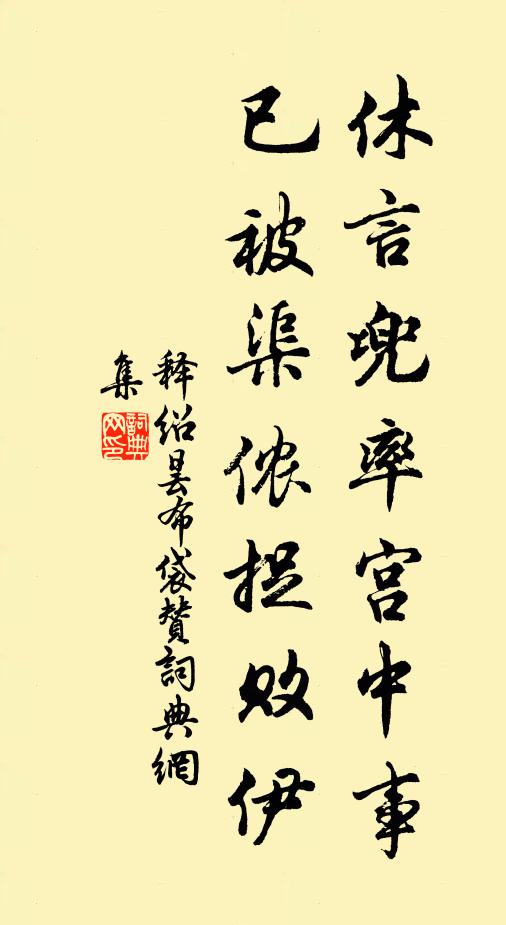 休言兜率宫中事
已被渠侬捉败伊
释绍昙布袋赞詞典網
集
詞典
网印